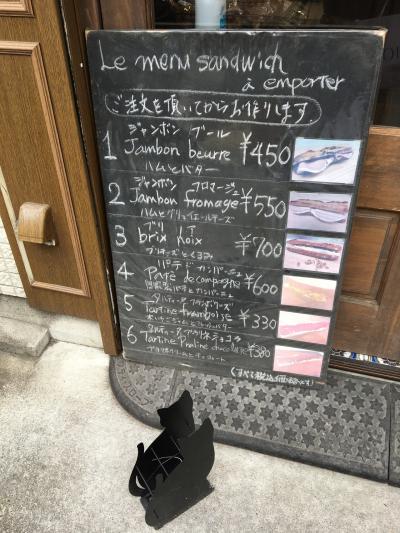 Le menu sandwich
à emporter
ご注文を頂いてからお作りします
ジャンボン ブール
1 Jambon beurre ¥450
ハムとバター
ジャンボン フロマージュ
2 Jambon fromage ¥550
ハムとグリュイエールチーズ
ブリ ノア
3 brix noix ¥700
ブリチーズとくるみ
パテ ド カンパーニュ
4 Paté de campagne ¥600
タルティーヌ フランボワーズ
5 Tartine framboise ¥330
タルティーヌ プラリネ ショコラ
6 Tartine Praline chocolat ¥380
(すべて税込価格です)